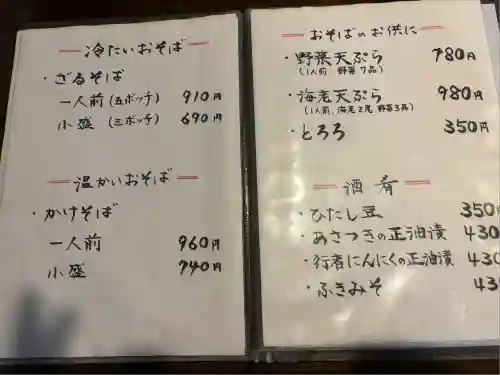 冷たいおそば
・ざるそば
一人前(五ボッチ) 910円
小盛(三ボッチ) 690円
温かいおそば
・かけそば
一人前 960円
小盛 740円
おそばのお供に
・野菜天ぷら 780円
(1人前 野菜7品)
・海老天ぷら 980円
(1人前、海老2尾、野菜3品)
・とろろ 350円
酒肴
・ひたし豆 350
・あさつきの正油漬 430
・行者にんにくの正油漬 430
・ふきみそ 43